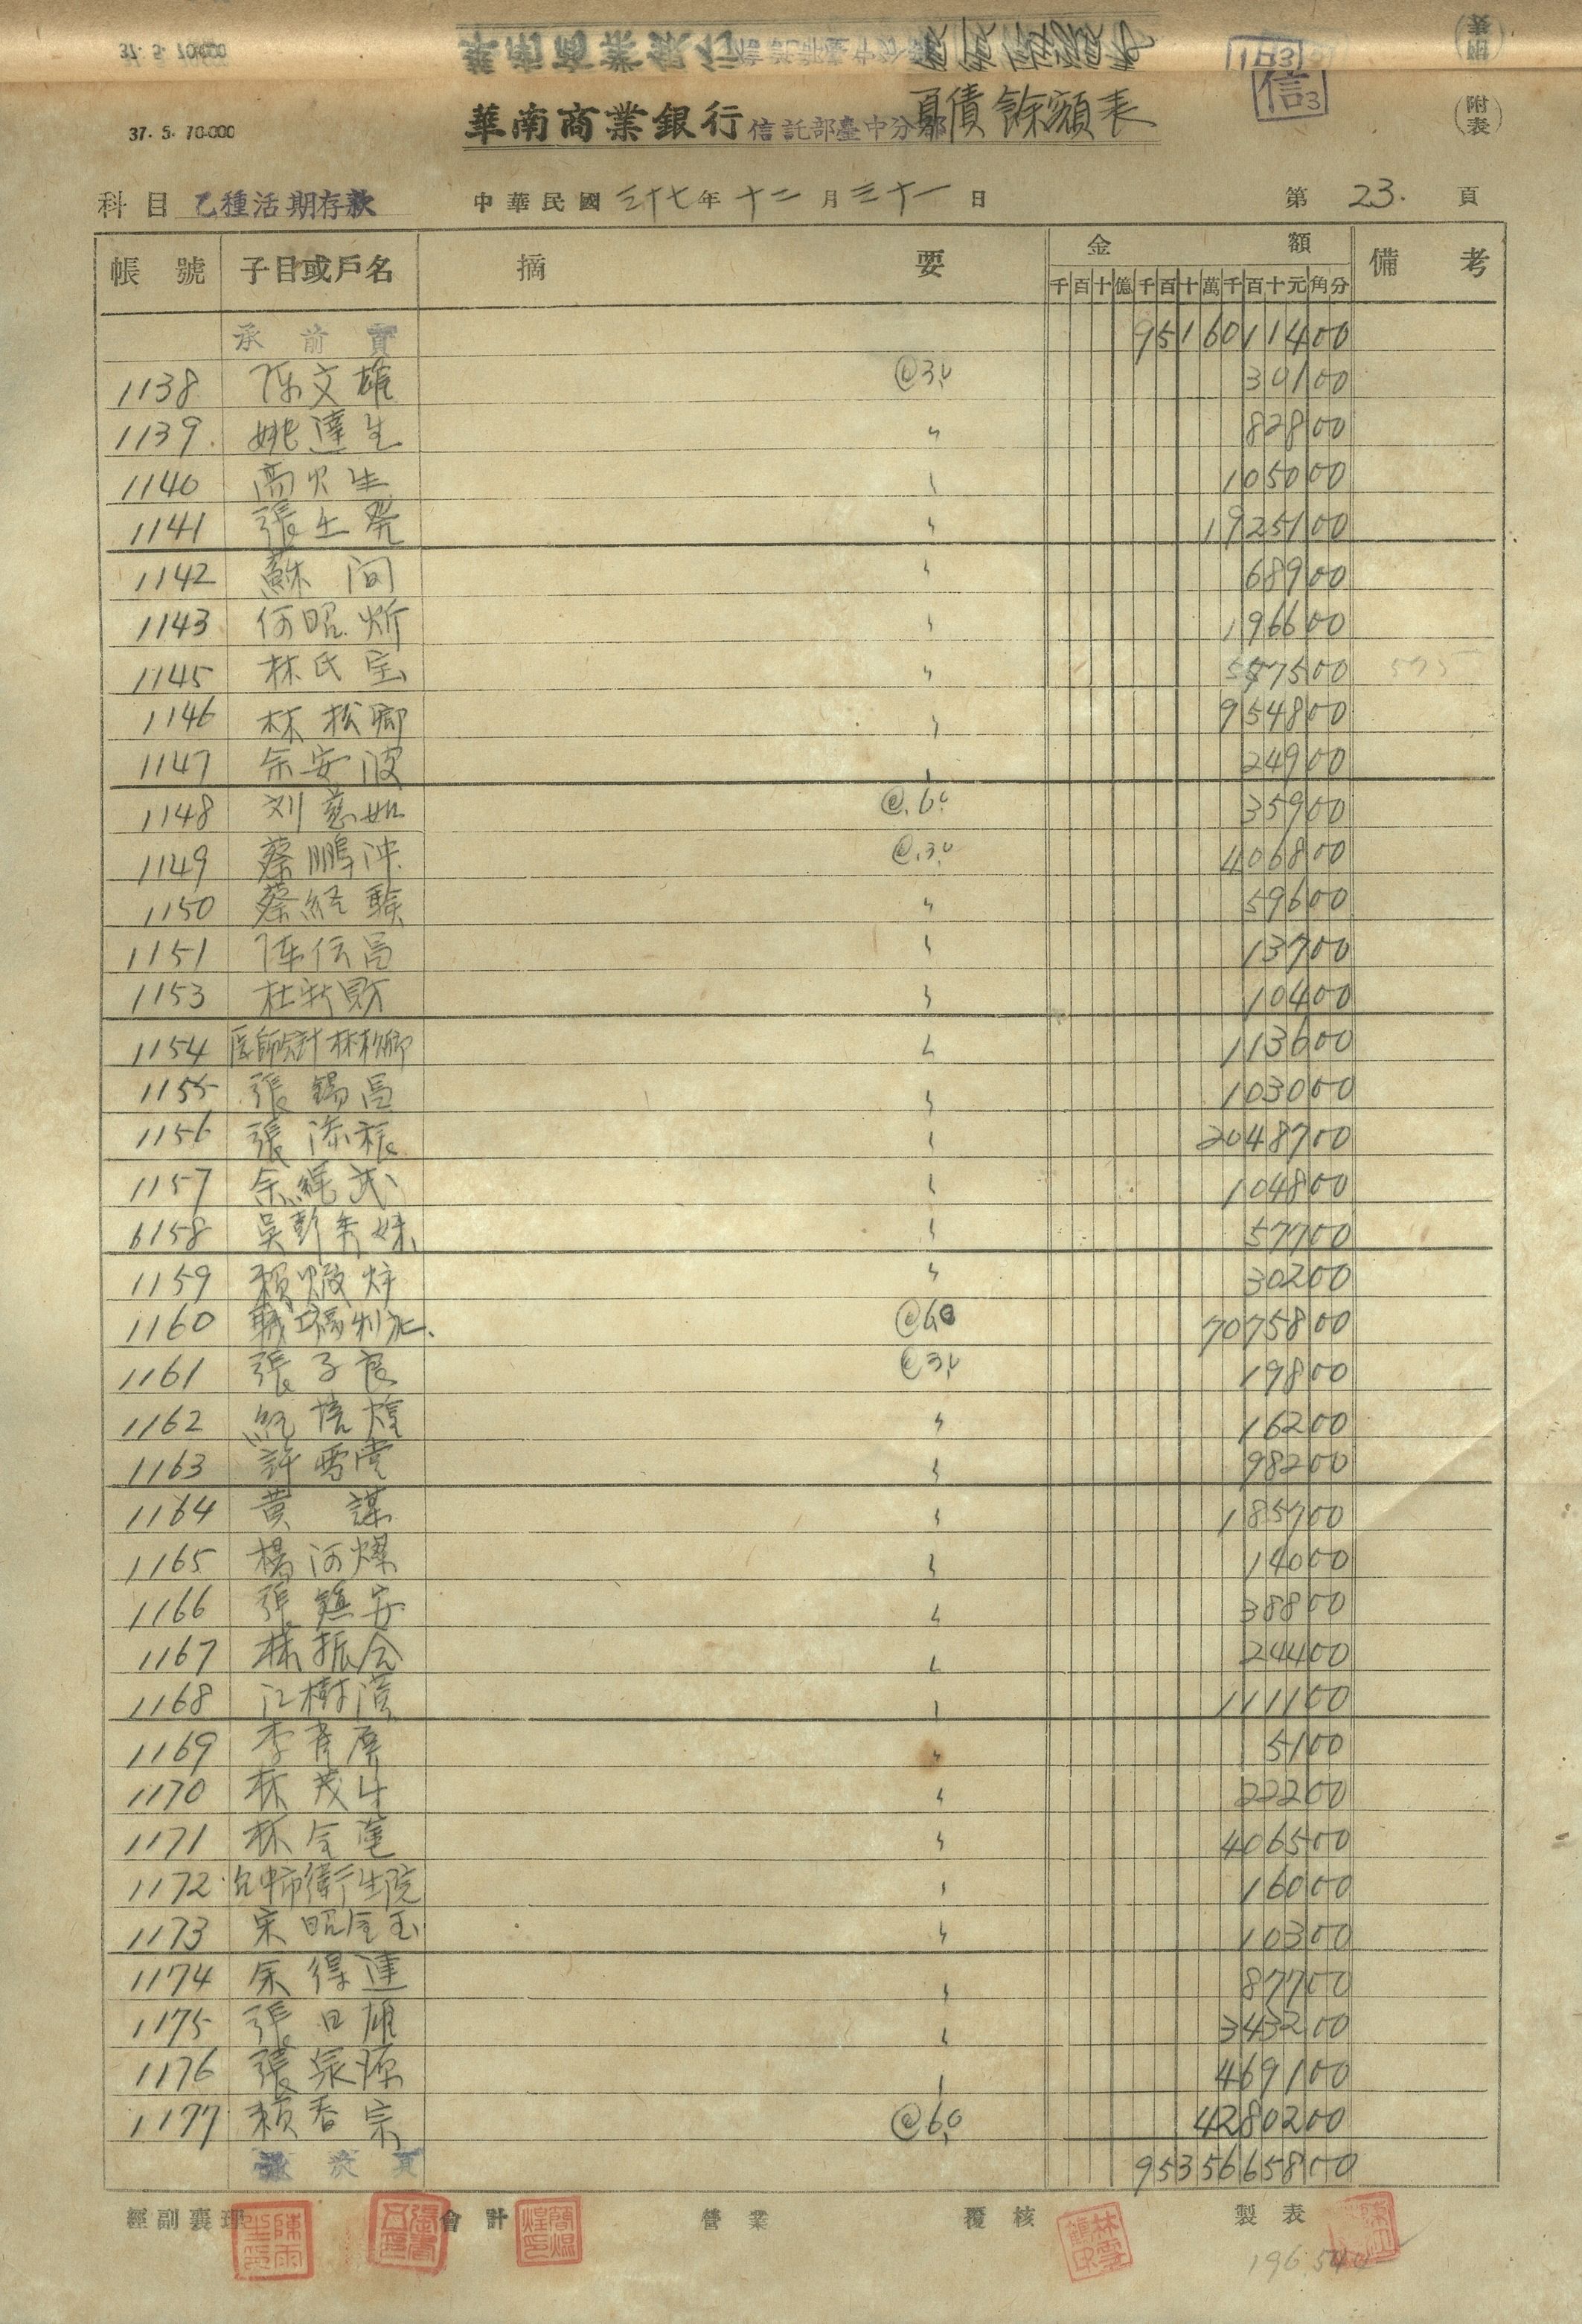 37. 5. 70.000
華南商業銀行信託部臺中分部負債餘額表
信3
(附表)
科目 乙種活期存款 中華民國三十七年十二月三十一日 第23.頁
帳號 子目或戶名 摘要 金額 備考
千百十億千百十萬千百十元角分
承前頁 951601 14 00
1138 陈文雄 @3.0 301 00
1139. 姚達生 〃 828 00
1140 高火生 〃 1050 00
1141 張生発 〃 19251 00
1142 蘇间 〃 689 00
1143 何昭炘 〃 1966 00
1145 林氏宝 〃 575 00 575
1146 林松卿 〃 9548 00
1147 余安波 〃 249 00
1148 刘慈如 @.6.0 359 00
1149 蔡鵬冲 @.3.0 4068 00
1150 蔡経験 〃 596 00
1151 陈伝昌 〃 137 00
1153 杜新財 〃 104 00
1154 医師会計林松卿 〃 1136 00
1155 張錫昌 〃 1030 00
1156 張添根 〃 20487 00
1157 余繩武 〃 1048 00
1158 吳彭秀妹 〃 577 00
1159 賴煅炉 〃 302 00
1160 @6.0 70758 00
1161 張子良 @3.0 198 00
1162 紀培煌 〃 162 00
1163 許雪堂 〃 982 00
1164 黄謀 〃 1857 00
1165 楊河燦 〃 140 00
1166 張鎮安 〃 388 00
1167 林振会 〃 244 00
1168 江樹濱 〃 1111 00
1169 李 〃 51 00
1170 林茂斗 〃 222 00
1171 林金蓮 〃 4065 00
1172 台中市衛生院 〃 160 00
1173 宋昭金玉 〃 103 00
1174 余得連 〃 877 00
1175 張日雄 〃 3432 00
1176 張泉源 〃 4691 00
1177 賴春宗 @6.0 42802 00
承次頁 95356658 00
經副襄理 會計 營業 覆核 製表